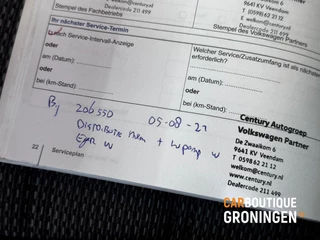 Stempel des Fachbetriebs
welkom@century.nl
Dealercode 211 499
9641 KV Veendam
T (0598) 62 21 12
E welkom@century.nl
Dealercode 211 499
Stempel des Volkswagen Partners
Ihr nächster Service-Termin
nach Service-Intervall-Anzeige
oder
am (Datum):
oder
bei (km-Stand):
Welcher Service/Zusatzumfang ist als nächstes
erforderlich?
am (Datum):
oder
bei (km-Stand):
By 206550 05-08-22
Distributie riem + w pomp w
Century Autogroep
Volkswagen Partner
De Zwaaikom 6
9641 KV Veendam
T 0598 62 21 12
welkom@century.nl
www.century.nl
Dealercode 211 499
22 Serviceplan
CARBOUTIQUE
GRONINGEN